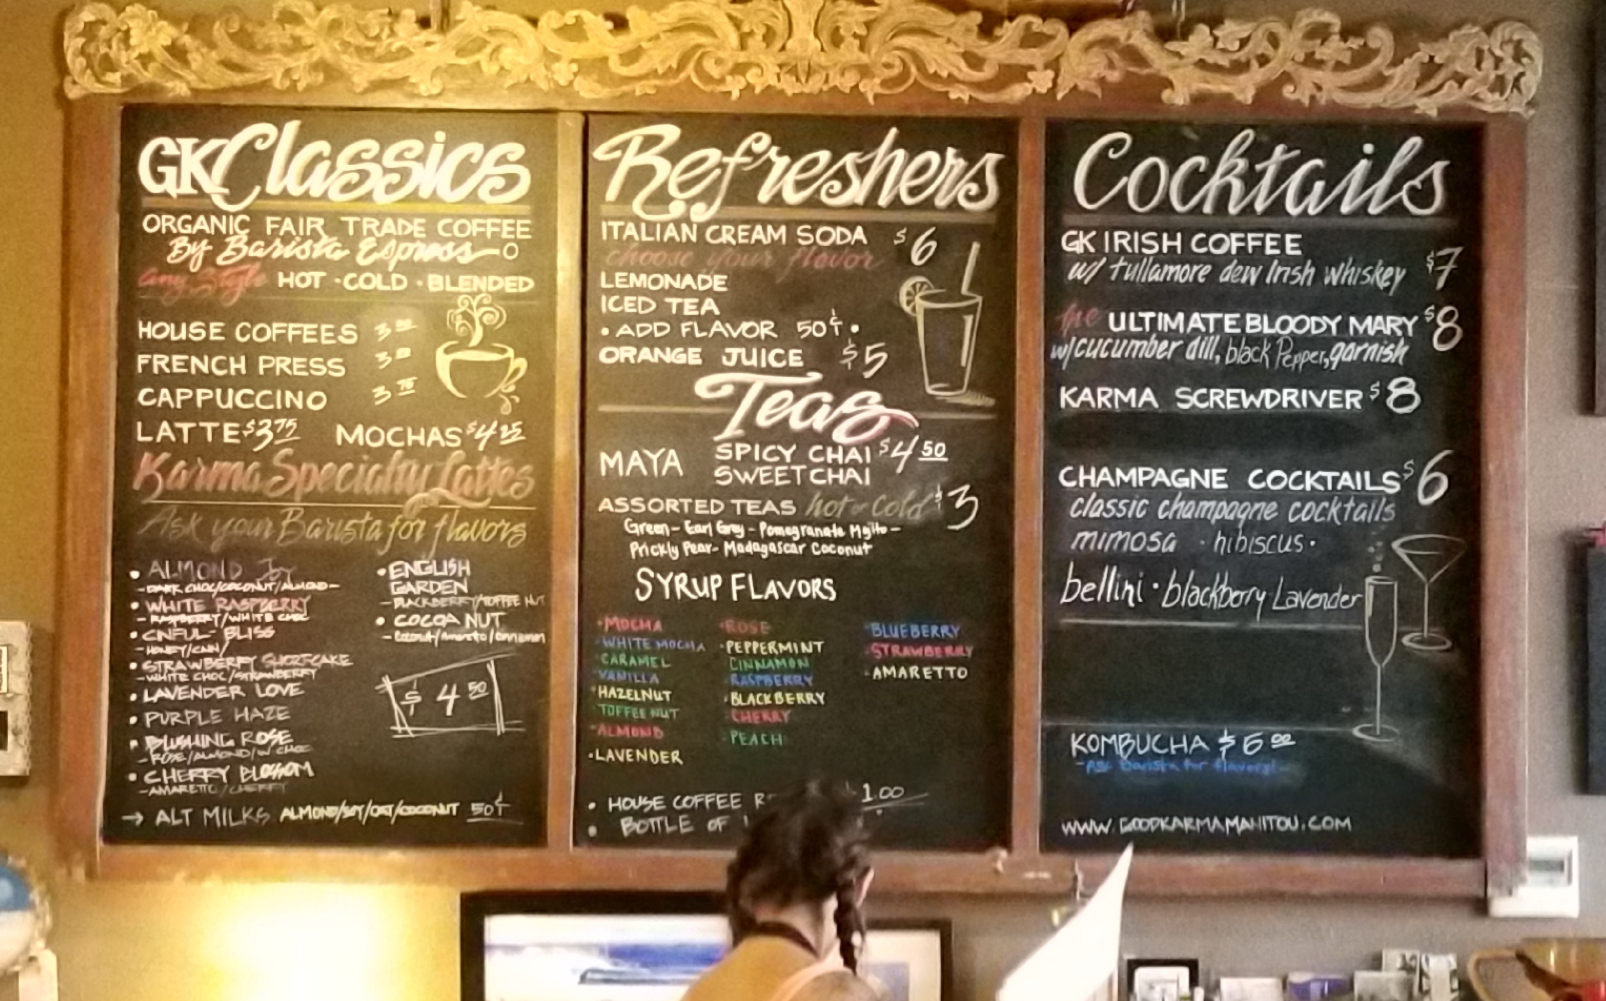 GK Classics
ORGANIC FAIR TRADE COFFEE
By Barista Espresso
any Style HOT · COLD · BLENDED
HOUSE COFFEES 3.00
FRENCH PRESS
CAPPUCCINO 3.75
LATTE $3.75 MOCHAS $4.25
Karma Specialty Lattes
Ask your Barista for flavors
• ALMOND Joy
- DARK CHOC/COCONUT/ALMOND -
• WHITE RASPBERRY
- RASPBERRY/WHITE CHOC
• CNFUL - BLISS
• STRAWBERRY SHORTCAKE
- WHITE CHOC/STRAWBERRY
• LAVENDER LOVE
• PURPLE HAZE
• BLUSHING ROSE
- ROSE/ALMOND/W. CHOC
• CHERRY BLOSSOM
- AMARETTO/CHERRY
• ENGLISH
GARDEN
- BLACKBERRY/TOFFEE NUT
• COCOA NUT
- coconut/amaretto/cinnamon
$4.50
→ ALT MILKS ALMOND/SOY/OAT/COCONUT 50¢
Refreshers
ITALIAN CREAM SODA $6
choose your flavor
LEMONADE
ICED TEA
• ADD FLAVOR 50¢ •
ORANGE JUICE $5
Teas
MAYA SPICY CHAI $4.50
SWEET CHAI
ASSORTED TEAS hot or Cold $3
Green - Earl Grey - Pomegranate Mojito -
Prickly Pear - Madagascar Coconut
SYRUP FLAVORS
• MOCHA
• WHITE MOCHA
• CARAMEL
• VANILLA
• HAZELNUT
• TOFFEE NUT
• ALMOND
• LAVENDER
• ROSE
• PEPPERMINT
CINNAMON
• RASPBERRY
• BLACKBERRY
• CHERRY
• PEACH
• BLUEBERRY
• STRAWBERRY
• AMARETTO
• HOUSE COFFEE $1.00
• BOTTLE OF
Cocktails
GK IRISH COFFEE $7
w/ tullamore dew Irish whiskey
the ULTIMATE BLOODY MARY $8
w/cucumber dill, black Pepper, garnish
KARMA SCREWDRIVER $8
CHAMPAGNE COCKTAILS $6
classic champagne cocktails
mimosa · hibiscus ·
bellini · blackberry Lavender
KOMBUCHA $6.00
- ask Barista for flavors! -
WWW.GOODKARMAMANITOU.COM